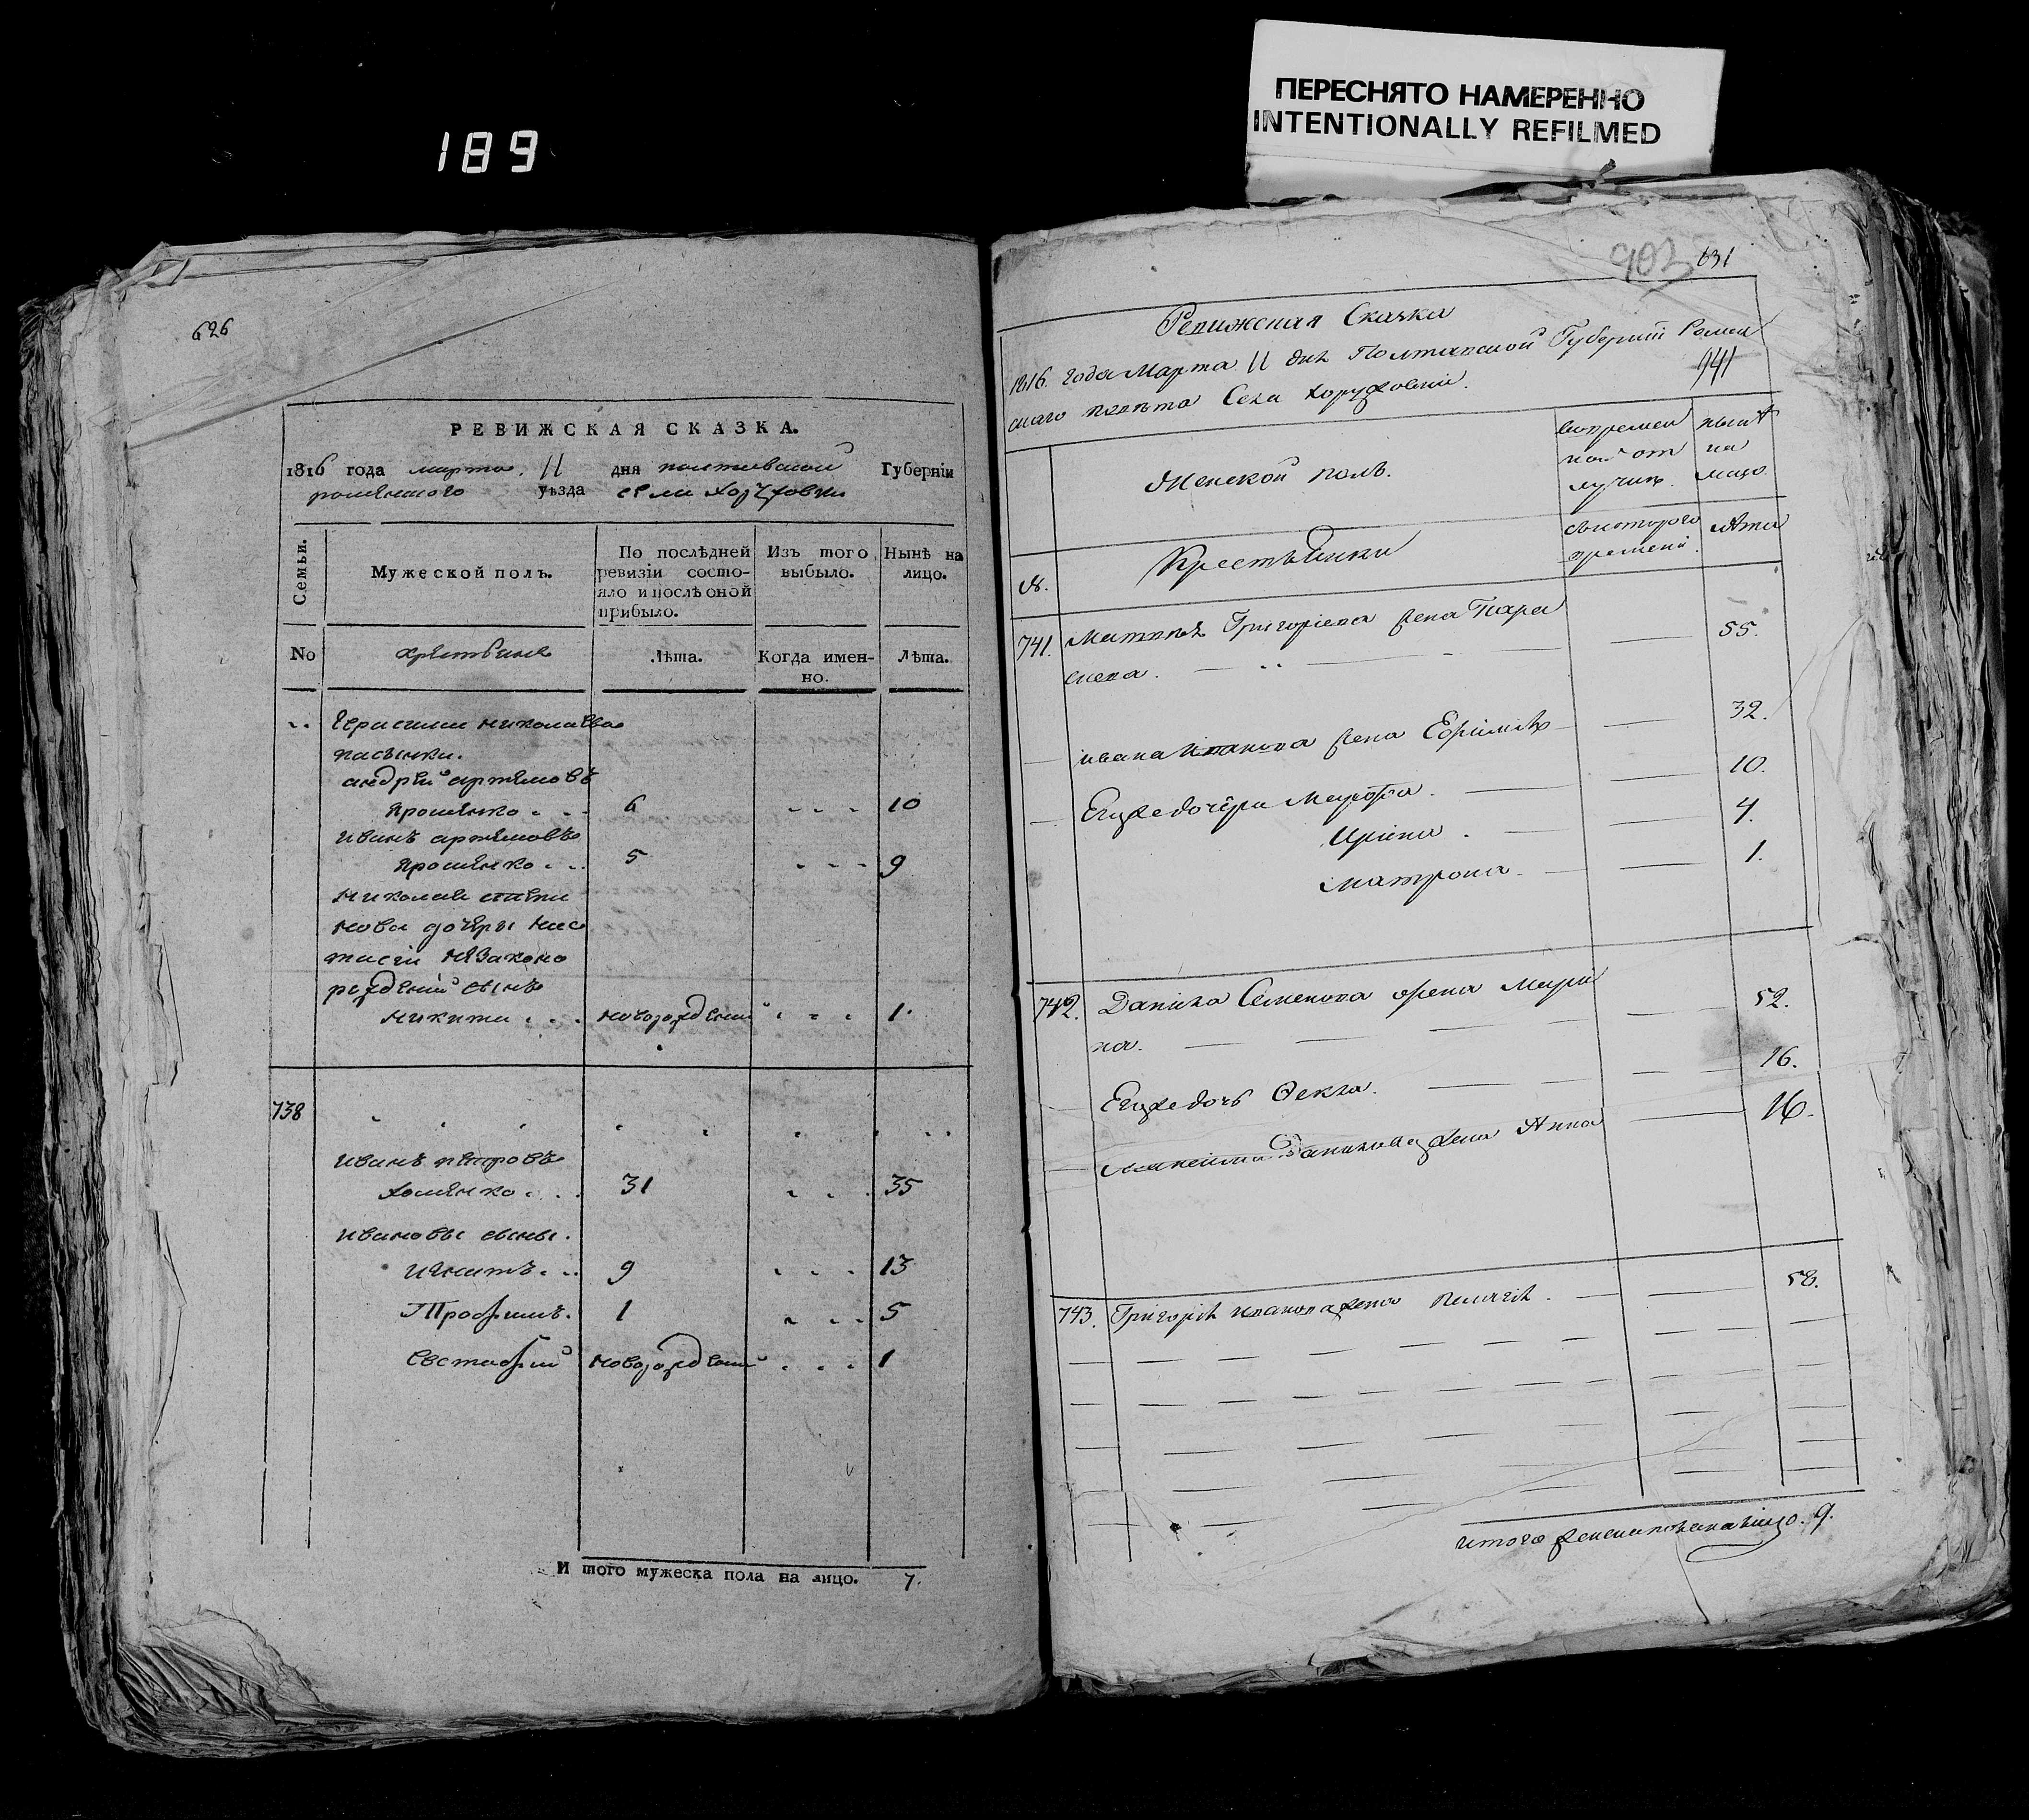 189
ПЕРЕСНЯТО НАМЕРЕННО
INTENTIONALLY REFILMED
626
РЕВИЖСКАЯ СКАЗКА.
1816 года марта 11 дня полтавской Губерніи
роменского уѣзда села хоружовки
Семьи.
Мужеской полъ.
По послѣдней ревизіи состояло и послѣ оной прибыло.
Изъ того выбыло.
Нынѣ на лицо.
No
Лѣта.
Когда именно.
Лѣта.
Герасима николаева
пасынки.
андрей артемовъ
ярошенко 6 10
иванъ артемовъ
ярошенко 5 9
николая
нова дочери нас
тасіи незаконо
рожденій сынъ
никита новорожденій 1.
738
иванъ петровъ
хоменко 31 35
ивановы сыны.
игнатъ 9 13
Трофимъ. 1 5
Евстафий новорожденій 1
И того мужеска пола на лицо. 7.
903 631
Ревижская Сказка
1816. года Марта 11 дня Полтавской Губерній Ромен
скаго повѣта Села хоружовки.
941
Женской полъ.
вовремен
ной от
лучкѣ.
нынѣ
на
лицо.
№.
Крестьянки
скоторого
времени.
лѣта
741. Матвея Григориева жена Пара
скева. 55.
ивана иванова жена Ефимія 32.
Егоже дочери Марфа. 10.
Ирина. 4.
Матрона. 1.
742. Данила Семенова жена Мари
на. 52.
Егоже дочь Фекла. 16.
Данилова жена Анна 16.
743. Григорія иванова жена 58.
итого женска пола налицо. 9.